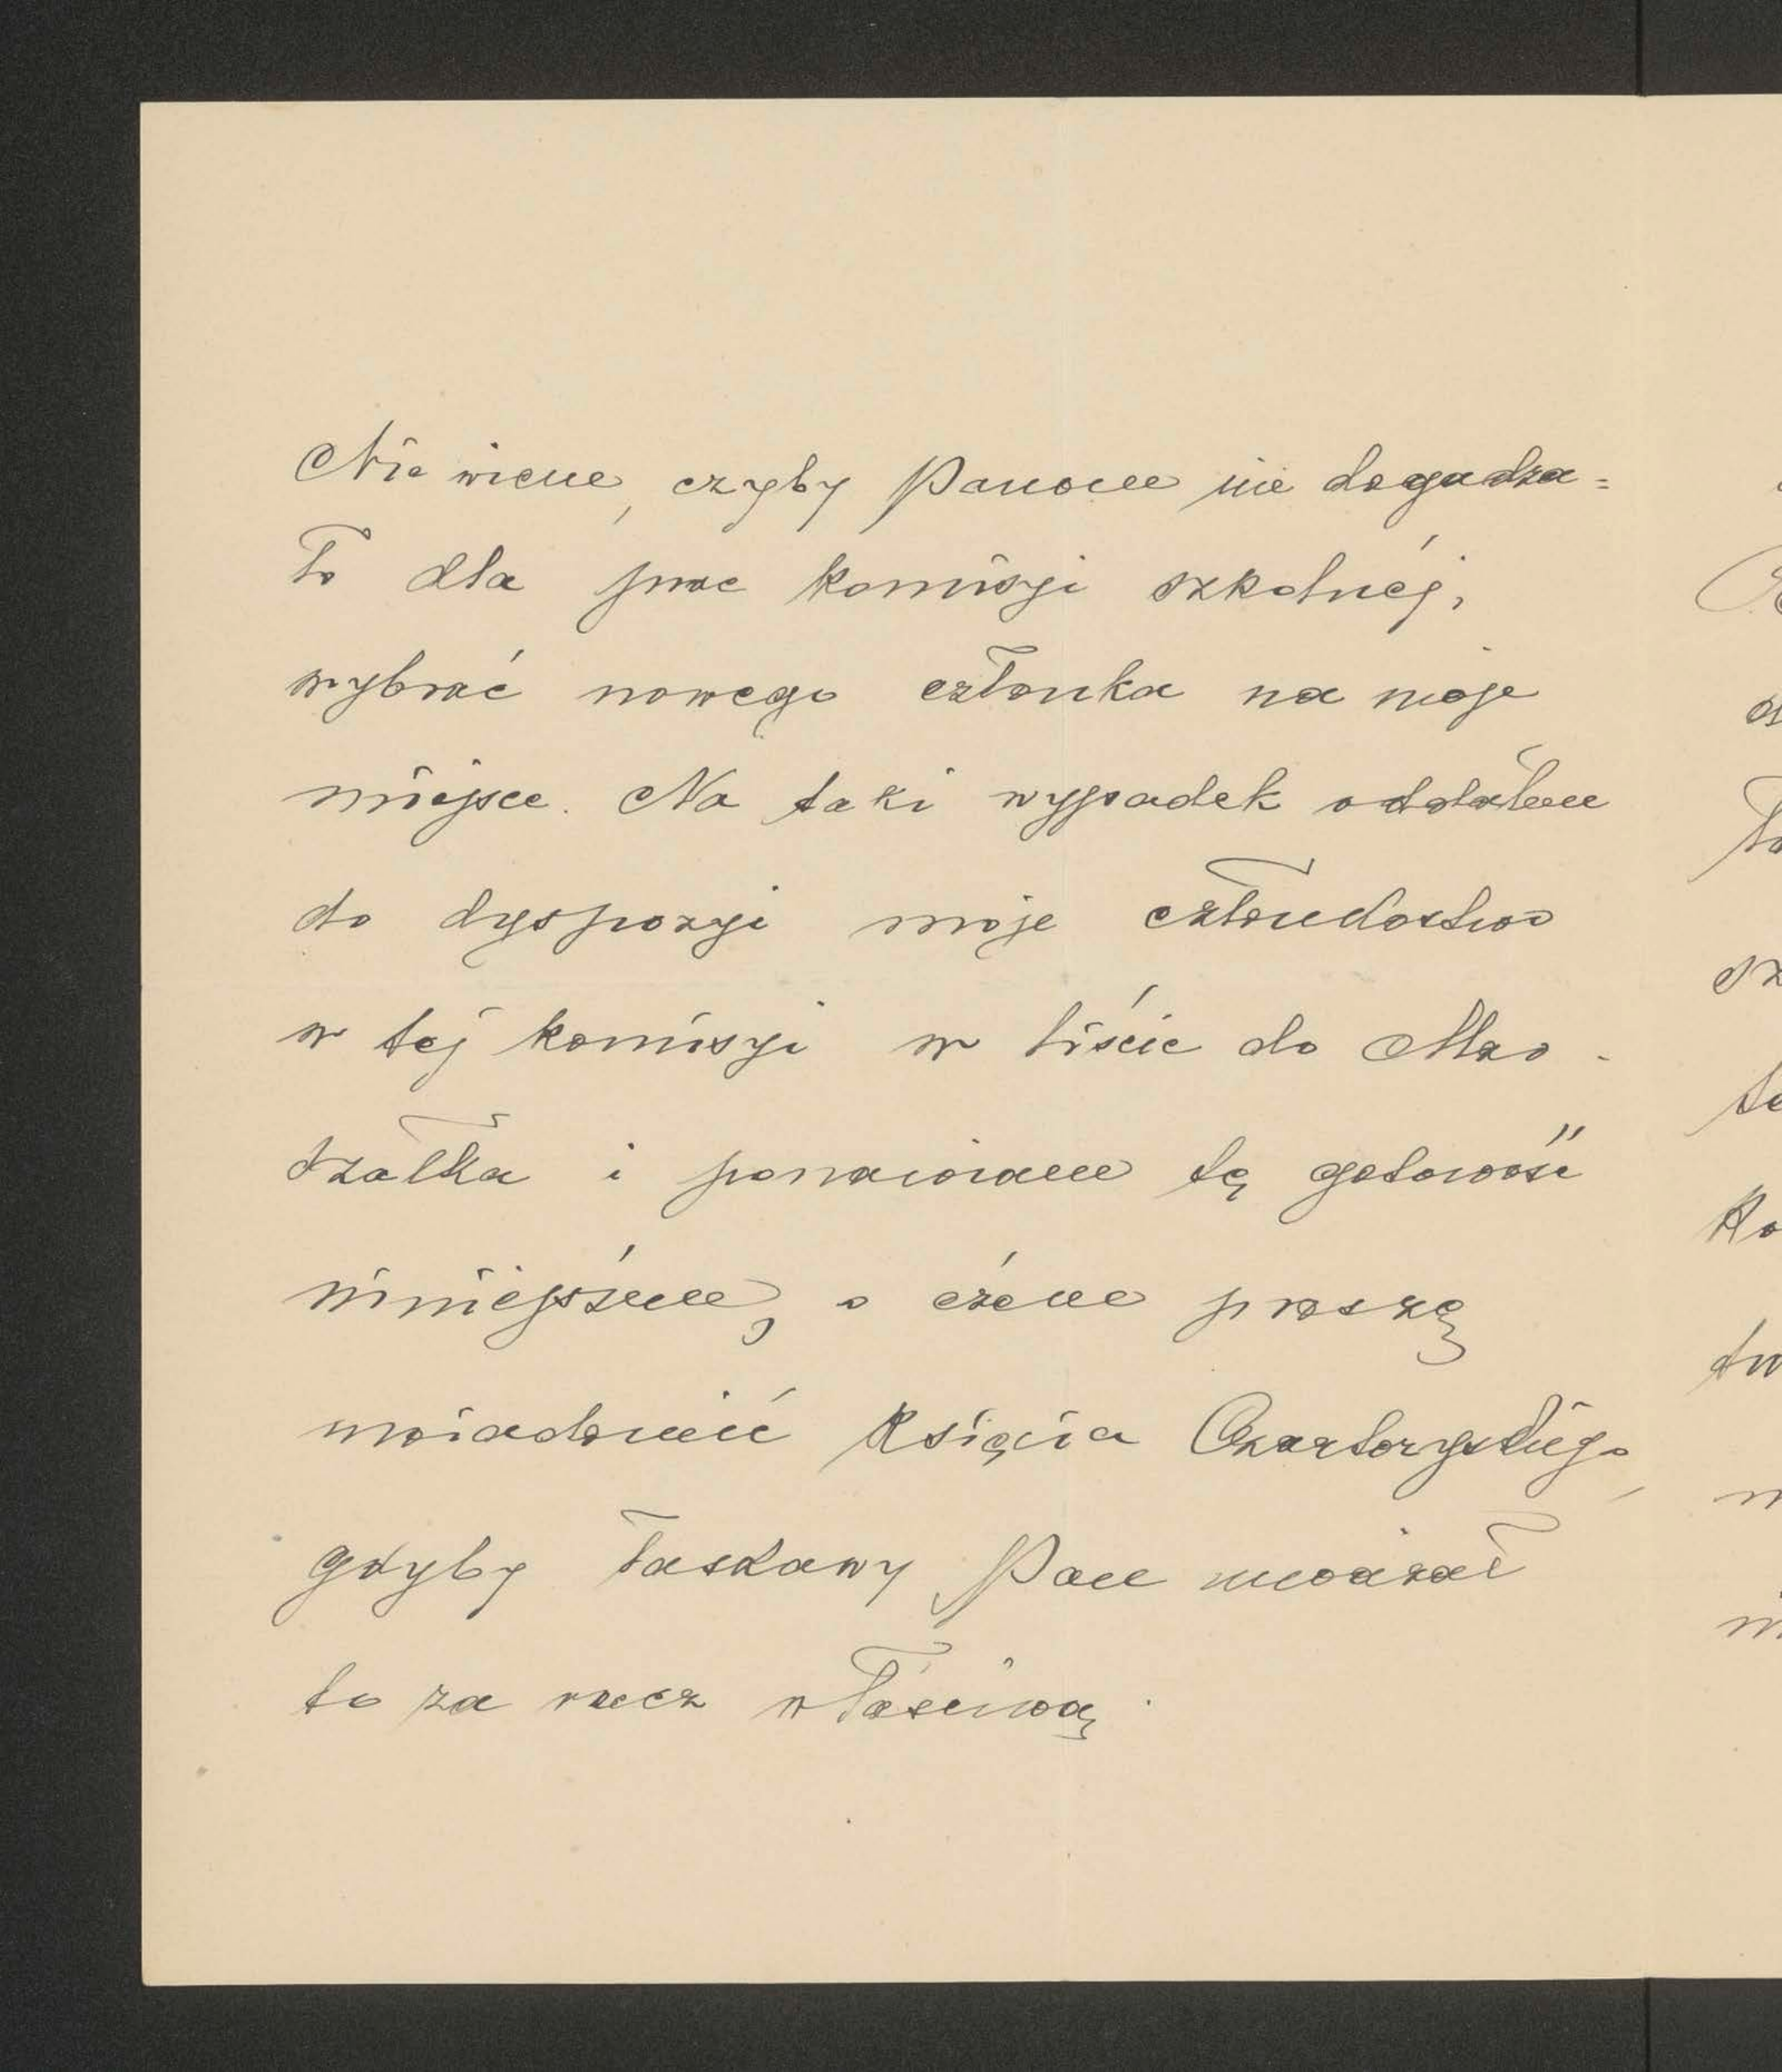 Nie wiem, czyby Panom nie dogadza=
ło dla prac komisyi szkolnéj,
wybrać nowego członka na moje
miejsce. Na taki wypadek oddałem
do dyspozyi moje człoukostwo
w tej komisyi w liście do Mar-
szałka i ponawiam tę gotowość
niniejszem, o czem proszę
uwiadomić Księcia Czartoryskiego,
gdyby łaskawy Pan uważał
to za rzecz właściwą.